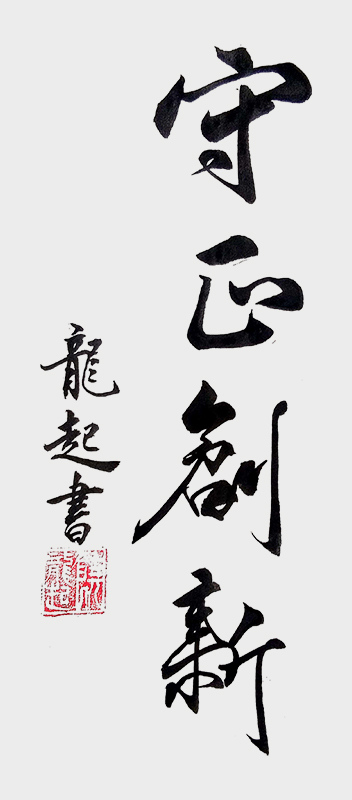 守正創新
龍起書